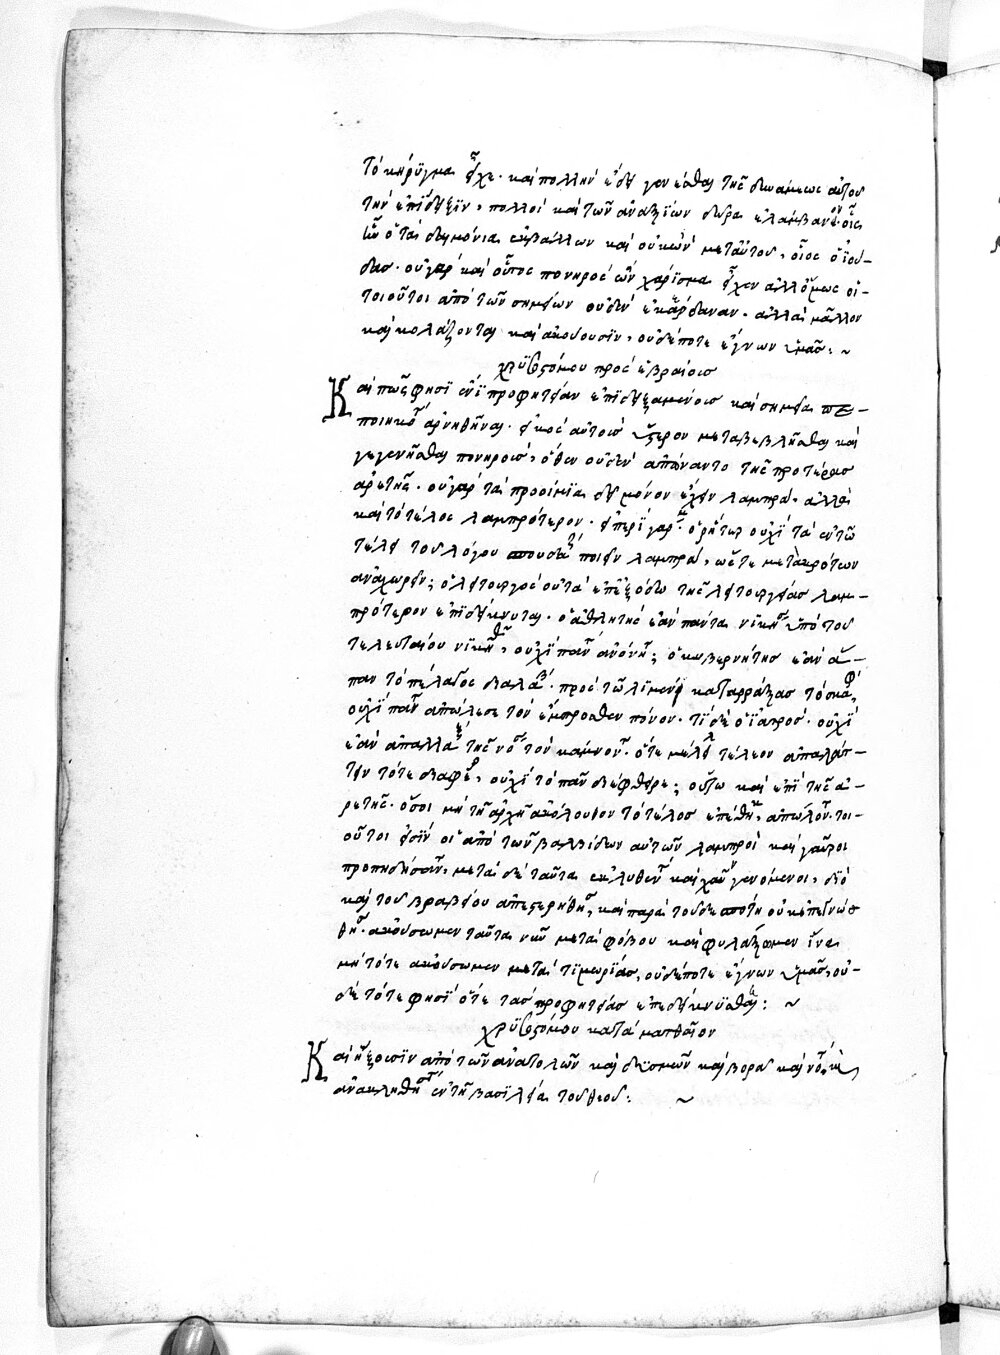 τὸ κήρϋγμα εἶχε· καὶ πολλὴν ἔδει γενέσθαι τῆς δυνάμεως αὐτοῦ
τὴν ἐπίδειξϊν, πολλοὶ καὶ τῶν ἀναξίων δῶρα ἐλάμβανον· οἷοι
ἦν ὁ τὰ δαιμόνια ἐκβάλλων καὶ οὐκ ὢν μετ' αὐτοῦ, οἷος ὁ ἰού-
δας· οὐ γὰρ καὶ οὗτος πονηρὸς ὢν χάρϊσμα εἶχεν ἀλλ' ὅμως οἱ-
τοιοῦτοι ἀπὸ τῶν σημείων οὐδὲν ἐκέρδαναν· ἀλλὰ μᾶλλον
καὶ κολάζονται καὶ ἀκούουσϊν, οὐδέποτε ἔγνων ὑμᾶς: ~
χρϋσοστόμου πρὸς ἑβραίους
Καὶ πῶς φησϊ ἔνϊ προφητείαν ἐπϊδειξαμένοις καὶ σημεῖα πε-
ποιηκόσιν ἀρνηθῆναι· εἰκὸς αὐτοὺς ὕστερον μεταβεβλῆσθαι καὶ
γεγενῆσθαι πονηροὺς, ὅθεν οὐδὲν ἀπώναντο τῆς προτέρας
ἀρετῆς· οὐ γὰρ τὰ προοίμϊα δεῖ μόνον ἔχειν λαμπρὰ, ἀλλὰ
καὶ τὸ τέλος λαμπρότερον· εἰπὲ γὰρ μοι ὁ ῥήτωρ οὐχὶ τὰ ἐν τῷ
τέλει τοῦ λόγου σπουδάζει ποιεῖν λαμπρὰ, ὥστε μετὰ κρότων
ἀναχωρεῖν; ὁ λειτουργὸς οὐ τὰ ἐπ' ἐξόδω τῆς λειτουργείας λαμ-
πρότερον ἐπιδείκνυται· ὁ ἀθλητὴς ἐὰν πάντα νικήση ὑπὸ τοῦ
τελευταίου νϊκηθῆ, οὐχὶ πᾶν ἀνόνητον; ὁ κυβερνήτης ἐὰν ἅ-
παν τὸ πέλαγος διαλάβη· πρὸς τῶ λϊμένι καταρράξας τὸ σκάφος,
οὐχὶ πᾶν ἀπώλεσε τὸν ἔμπροσθεν πόνον· τί δὲ ὁ ἰατρὸς· οὐχὶ
ἐὰν ἀπαλλάξη τῆς νόσου τὸν κάμνοντα· ὅτε μέλλει τέλεον ἀπαλάτ-
τειν τότε διαφθείρη, οὐχὶ τὸ πᾶν διέφθειρε; οὕτω καὶ ἐπὶ τῆς ἀ-
ρετῆς· ὅσοι μὴ τῆ ἀρχῆ ἀκόλουθον τὸ τέλος ἐπέθηκαν, ἀπώλοντο· τοι-
οῦτοι εἰσϊν οἱ ἀπὸ τῶν βαλβίδων αὐτῶν λαμπροὶ καὶ γαῦροι
προπηδήσαντες, μετὰ δὲ ταῦτα ἐκλυθέντες καὶ χαῦνοι γενόμενοι, δϊὸ
καὶ τοῦ βραβείου ἀπεστερήθησαν, καὶ παρὰ τοῦ δεσπότη οὐκ ἐπεγνώσ
θησαν· ἀκούσωμεν ταῦτα νῦν μετὰ φόβου καὶ φυλάξωμεν ἵνα
μὴ τότε ἀκούσωμεν μετὰ τϊμωρίας, οὐδέποτε ἔγνων ὑμᾶς, οὐ-
δὲ τότε φησϊ ὅτε τὰς προφητείας ἐπεδείκνϋσθαι: ~
χρϋσοστόμου κατὰ ματθαῖον
Καὶ ἥξουσϊν ἀπὸ τῶν ἀνατολῶν καὶ δϋσμῶν καὶ βορᾶ καὶ νότου, καὶ
ἀνακληθήσονται ἐν τῆ βασϊλεία τοῦ θεοῦ: ~